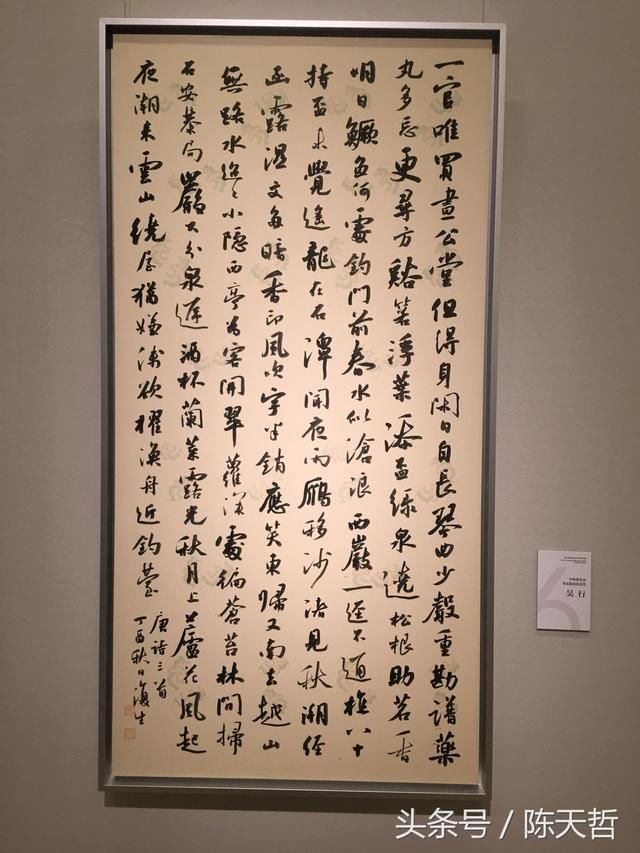 一官唯買晝公堂但得身閑日自長琴曲少聲重勘譜藥
丸多忌更尋方谿箬浮葉添盃綠泉遶松根助茗香
明日鱖魚何處釣門前春水似滄浪西巖一徑不通樵八十
持盃未覺遙龍在石潭聞夜雨雁移沙渚見秋潮經
函露濕文多暗香印風吹字半銷應笑東歸又南去越山
無路水迢〻小隱西亭為客開翠蘿深處徧蒼苔林間掃
石安棊局巖下分泉遞酒杯蘭葉露光秋月上蘆花風起
夜潮來雲山繞屋猶嫌淺欲櫂漁舟近釣臺
唐詩三首
丁酉秋日復生
吴 行
头条号 / 陈天哲